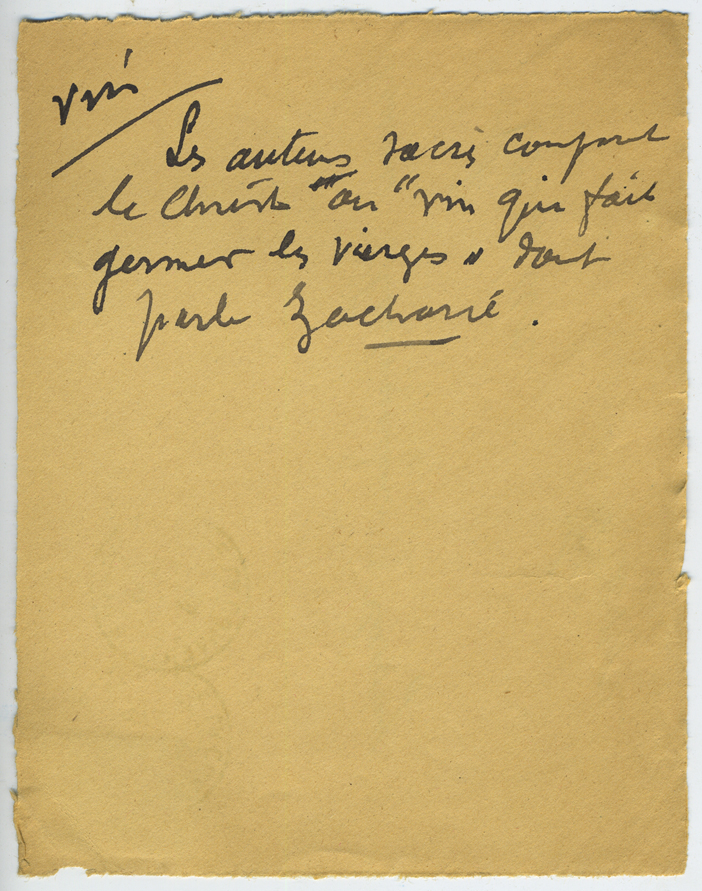 vin
Les auteurs sacrés comparent
le Christ au "vin qui fait
germer les vierges" dont
parle Zacharie.